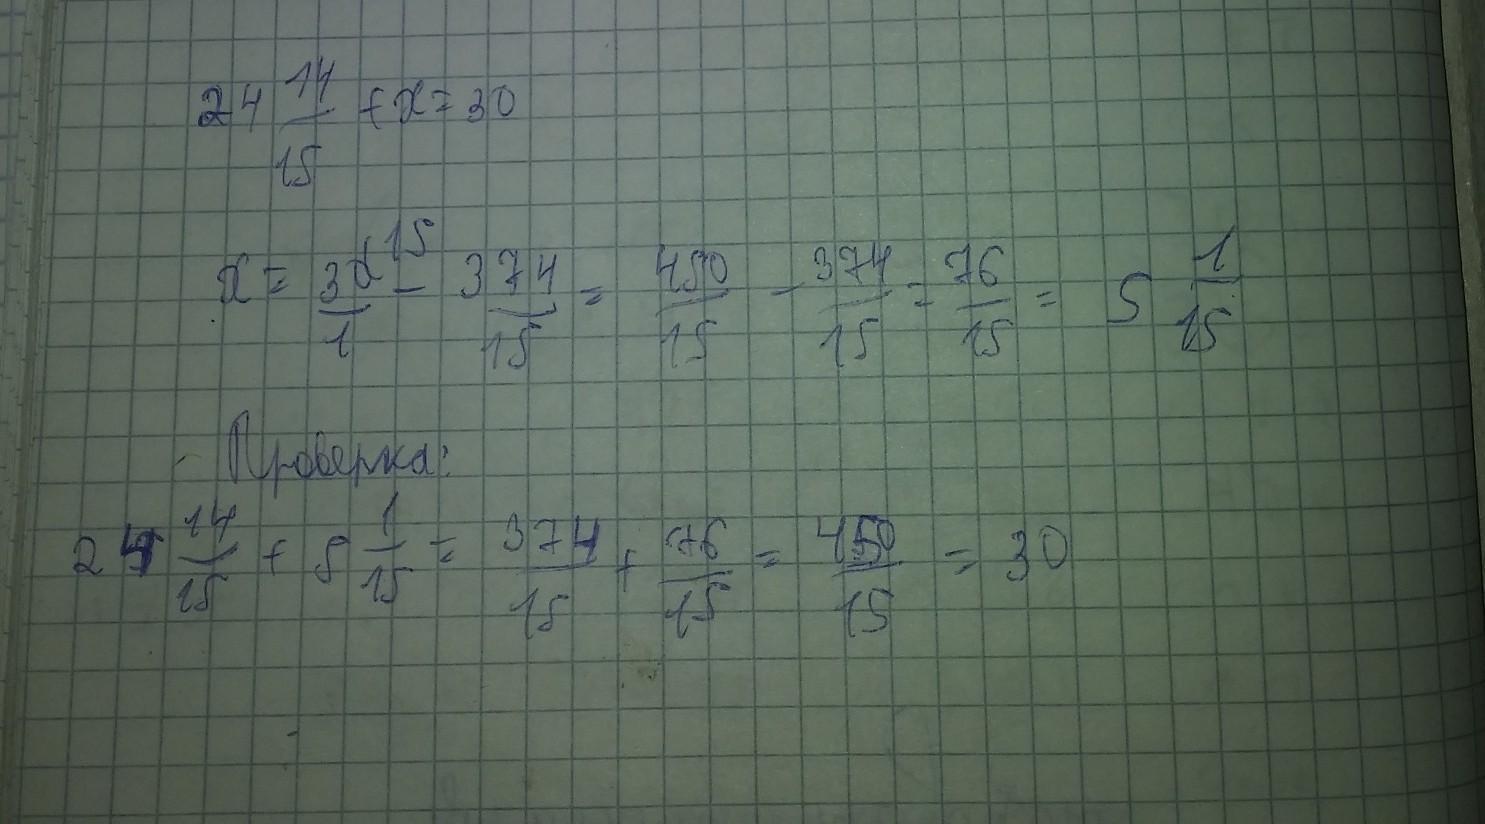 24 14/15 + x = 30
x = 30/1 ^15 - 374/15 = 450/15 - 374/15 = 76/15 = 5 1/15
Проверка:
24 14/15 + 5 1/15 = 374/15 + 76/15 = 450/15 = 30